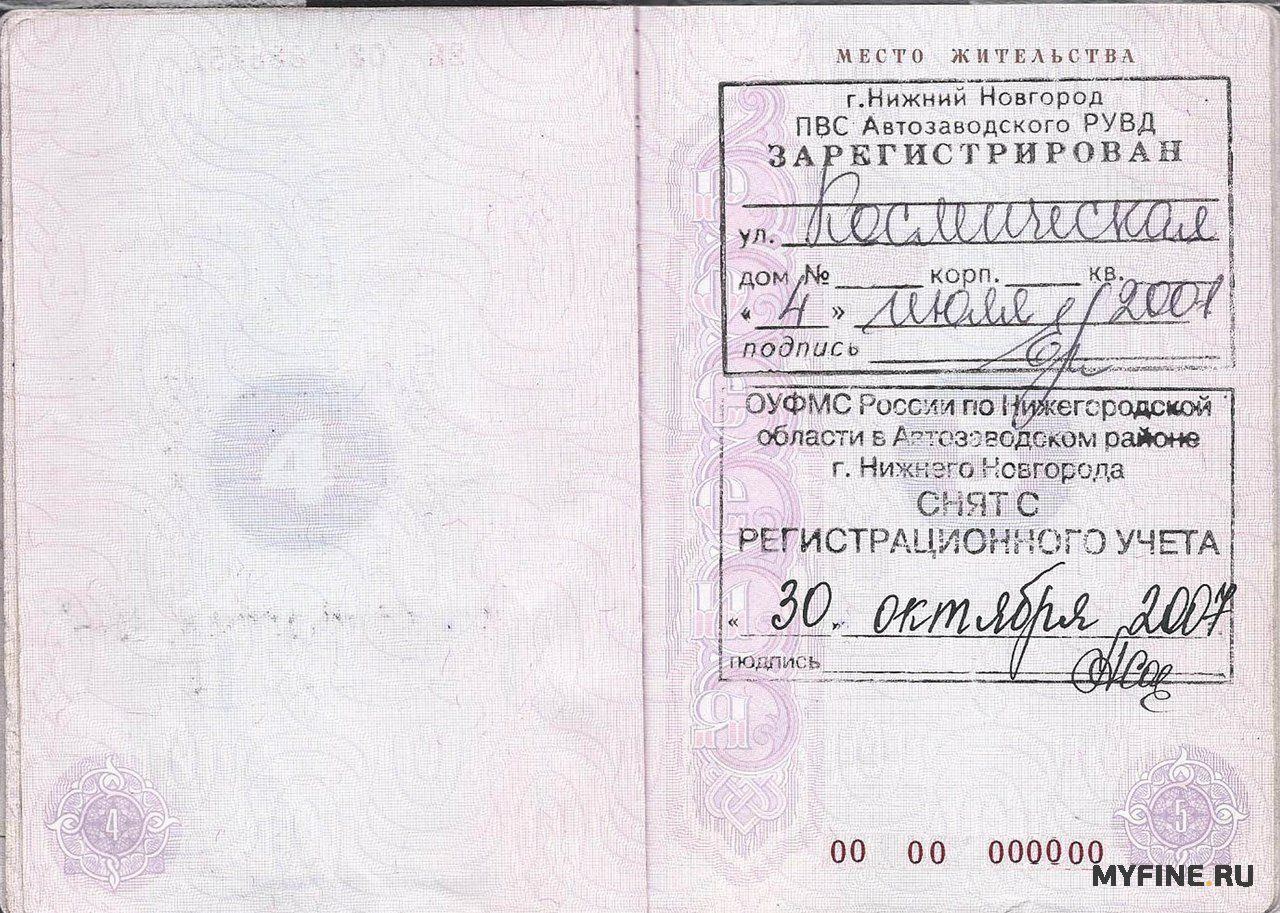 МЕСТО ЖИТЕЛЬСТВА
г.Нижний Новгород
ПВС Автозаводского РУВД
ЗАРЕГИСТРИРОВАН
ул. Космическая
дом № корп. кв.
« 4 » июля 2001
подпись
ОУФМС России по Нижегородской
области в Автозаводском районе
г. Нижнего Новгорода
СНЯТ С
РЕГИСТРАЦИОННОГО УЧЕТА
« 30 » октября 2007
подпись
РОССИЯ
4
4
5
00 00 000000
MYFINE.RU